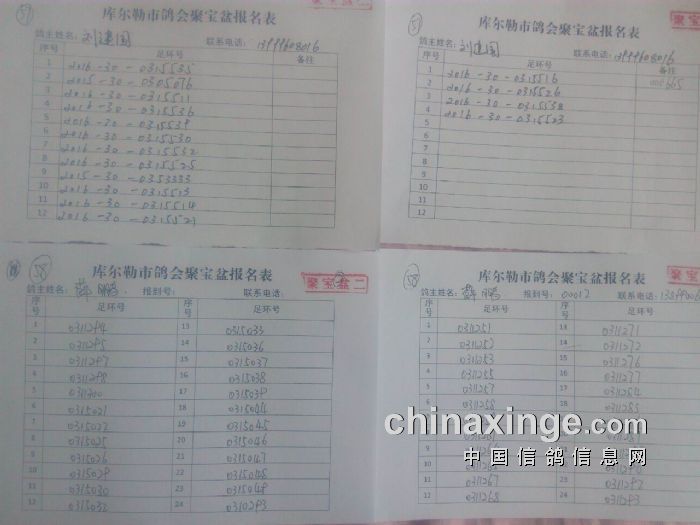 57
聚宝盆二
库尔勒市鸽会聚宝盆报名表
鸽主姓名: 刘建国 联系电话: 13999608016
序号 足环号 备注
1 2016-30-0315535
2 2015-30-0305076
3 2016-30-0315511
4 2016-30-0315536
5 2016-30-0315539
6 2016-30-0315530
7 2016-30-0315532
8 2016-30-0315525
9 2015-30-0353333
10 2016-30-0315513
11 2016-30-0315514
12 2016-30-0315521
聚宝
库尔勒市鸽会聚宝盆报名表
鸽主姓名: 刘建国 联系电话: 13999608016
序号 足环号 备注
1 2016-30-0315516
2 2016-30-0315526
3 2016-30-0315538
4 2016-30-0315523
5
6
7
8
9
10
11
12
58
库尔勒市鸽会聚宝盆报名表
聚宝盆二
鸽主姓名: 薛鹏 报到号: 联系电话:
序号 足环号 序号 足环号
1 0311294 13 0315033
2 0311295 14 0315036
3 0311297 15 0315037
4 0311298 16 0315038
5 0311300 17 0315039
6 0315021 18 0315044
7 0315022 19 0315045
8 0315025 20 0315046
9 0315026 21 0315047
10 0315029 22 0315048
11 0315030 23 0315049
12 0315032 24 0310293
58
库尔勒市鸽会聚宝盆报名表
聚宝
鸽主姓名: 薛鹏 报到号: 00017 联系电话:
序号 足环号 序号 足环号
1 0311251 13 0311271
2 0311252 14 0311272
3 0311253 15 0311276
4 0311255 16 0311277
5 0311257 17 0311284
6 0311258 18 0311285
11 0311267 23 0311292
12 0311268 24 0311293
chinaxinge.com
中国信鸽信息网